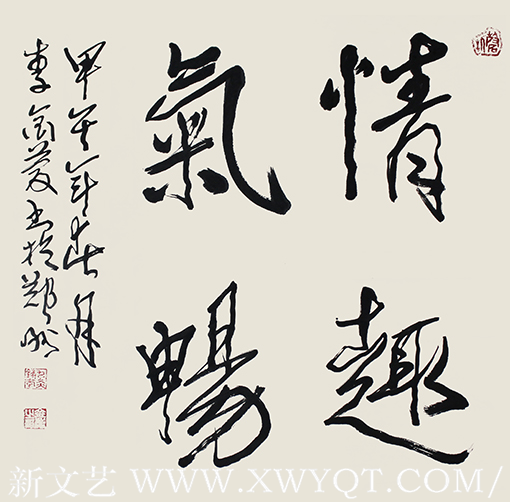 情趣
氣暢
甲午年春月
李金慶书於鄭州
新文艺 WWW.XWYQT.COM/